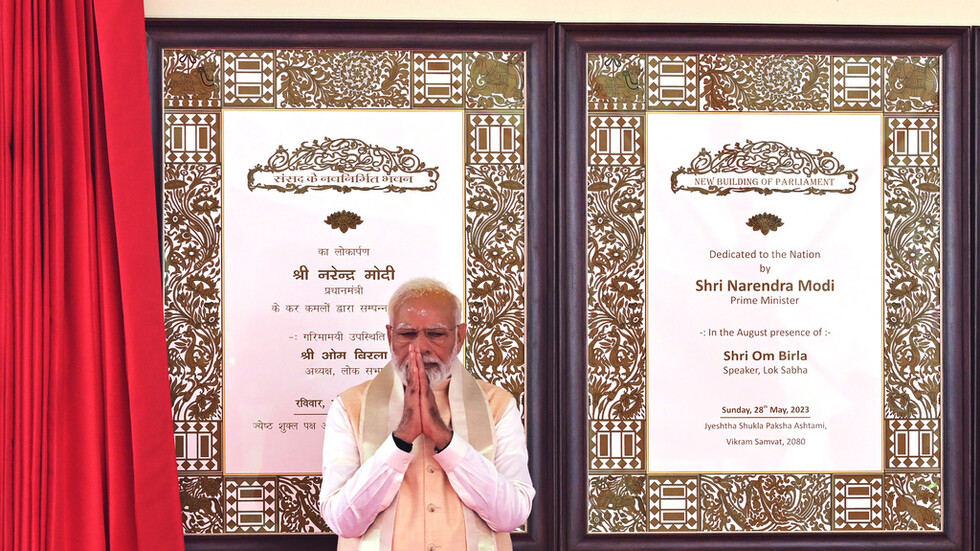 संसद के नवनिर्मित भवन
का लोकार्पण
श्री नरेन्द्र मोदी
प्रधानमंत्री
के कर कमलों द्वारा सम्पन्न
-: गरिमामयी उपस्थिति
श्री ओम बिरला
अध्यक्ष, लोक सभा
रविवार,
ज्येष्ठ शुक्ल पक्ष
NEW BUILDING OF PARLIAMENT
Dedicated to the Nation
by
Shri Narendra Modi
Prime Minister
-: In the August presence of :-
Shri Om Birla
Speaker, Lok Sabha
Sunday, 28th May, 2023
Jyeshtha Shukla Paksha Ashtami,
Vikram Samvat, 2080